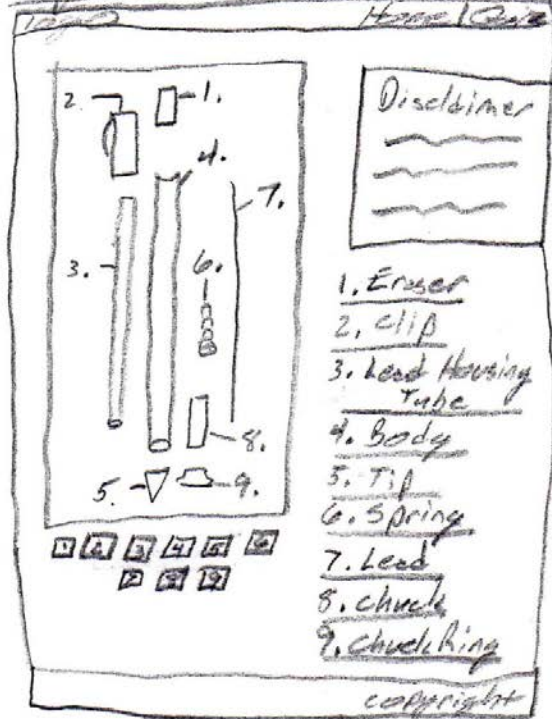 Logo
Home | Quiz
2.
1.
4.
7.
3.
6.
8.
5.
9.
1 2 3 4 5 6
7 8 9
Disclaimer
1. Eraser
2. Clip
3. Lead Housing
Tube
4. Body
5. Tip
6. Spring
7. Lead
8. Chuck
9. Chuck Ring
copyright